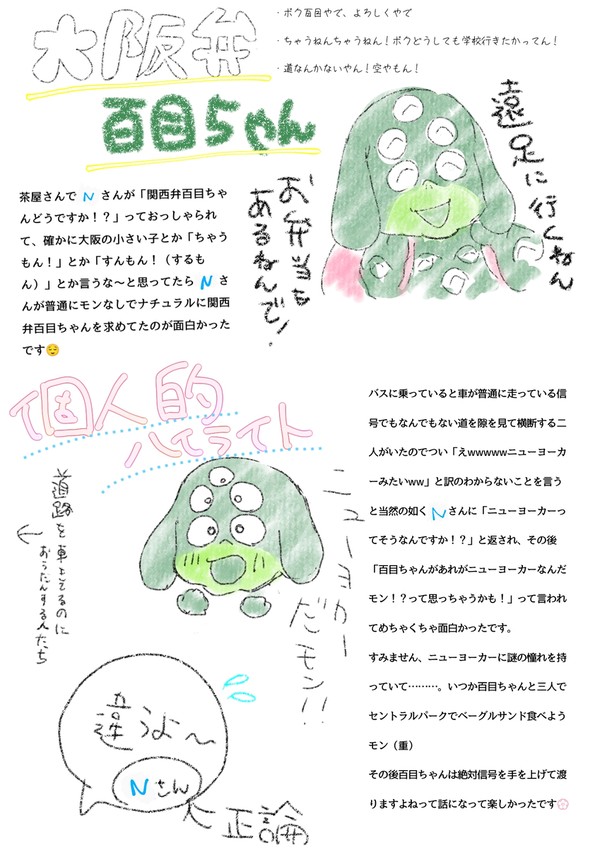 大阪弁
百目ちゃん
・ボク百目やで、よろしくやで
・ちゃうねんちゃうねん！ボクどうしても学校行きたかってん！
・道なんかないやん！空やもん！
遠足に行くねん
お弁当も
あるねんで！
茶屋さんで N さんが「関西弁百目ちゃ
んどうですか！？」っておっしゃられ
て、確かに大阪の小さい子とか「ちゃう
もん！」とか「すんもん！（するも
ん）」とか言うな〜と思ってたら N さ
んが普通にモンなしでナチュラルに関西
弁百目ちゃんを求めてたのが面白かった
です😌
個人的
ハイライト
道路を車走ってるのに
おうだんする人たち
ニューヨーカー
だモン!!
違うよ〜
Nさん
正論
バスに乗っていると車が普通に走っている信
号でもなんでもない道を隙を見て横断する二
人がいたのでつい「えwwwwwニューヨーカ
ーみたいww」と訳のわからないことを言う
と当然の如く N さんに「ニューヨーカーっ
てそうなんですか！？」と返され、その後
「百目ちゃんがあれがニューヨーカーなんだ
モン！？って思っちゃうかも！」って言われ
てめちゃくちゃ面白かったです。
すみません、ニューヨーカーに謎の憧れを持
っていて………。いつか百目ちゃんと三人で
セントラルパークでベーグルサンド食べよう
モン（重）
その後百目ちゃんは絶対信号を手を上げて渡
りますよねって話になって楽しかったです💮